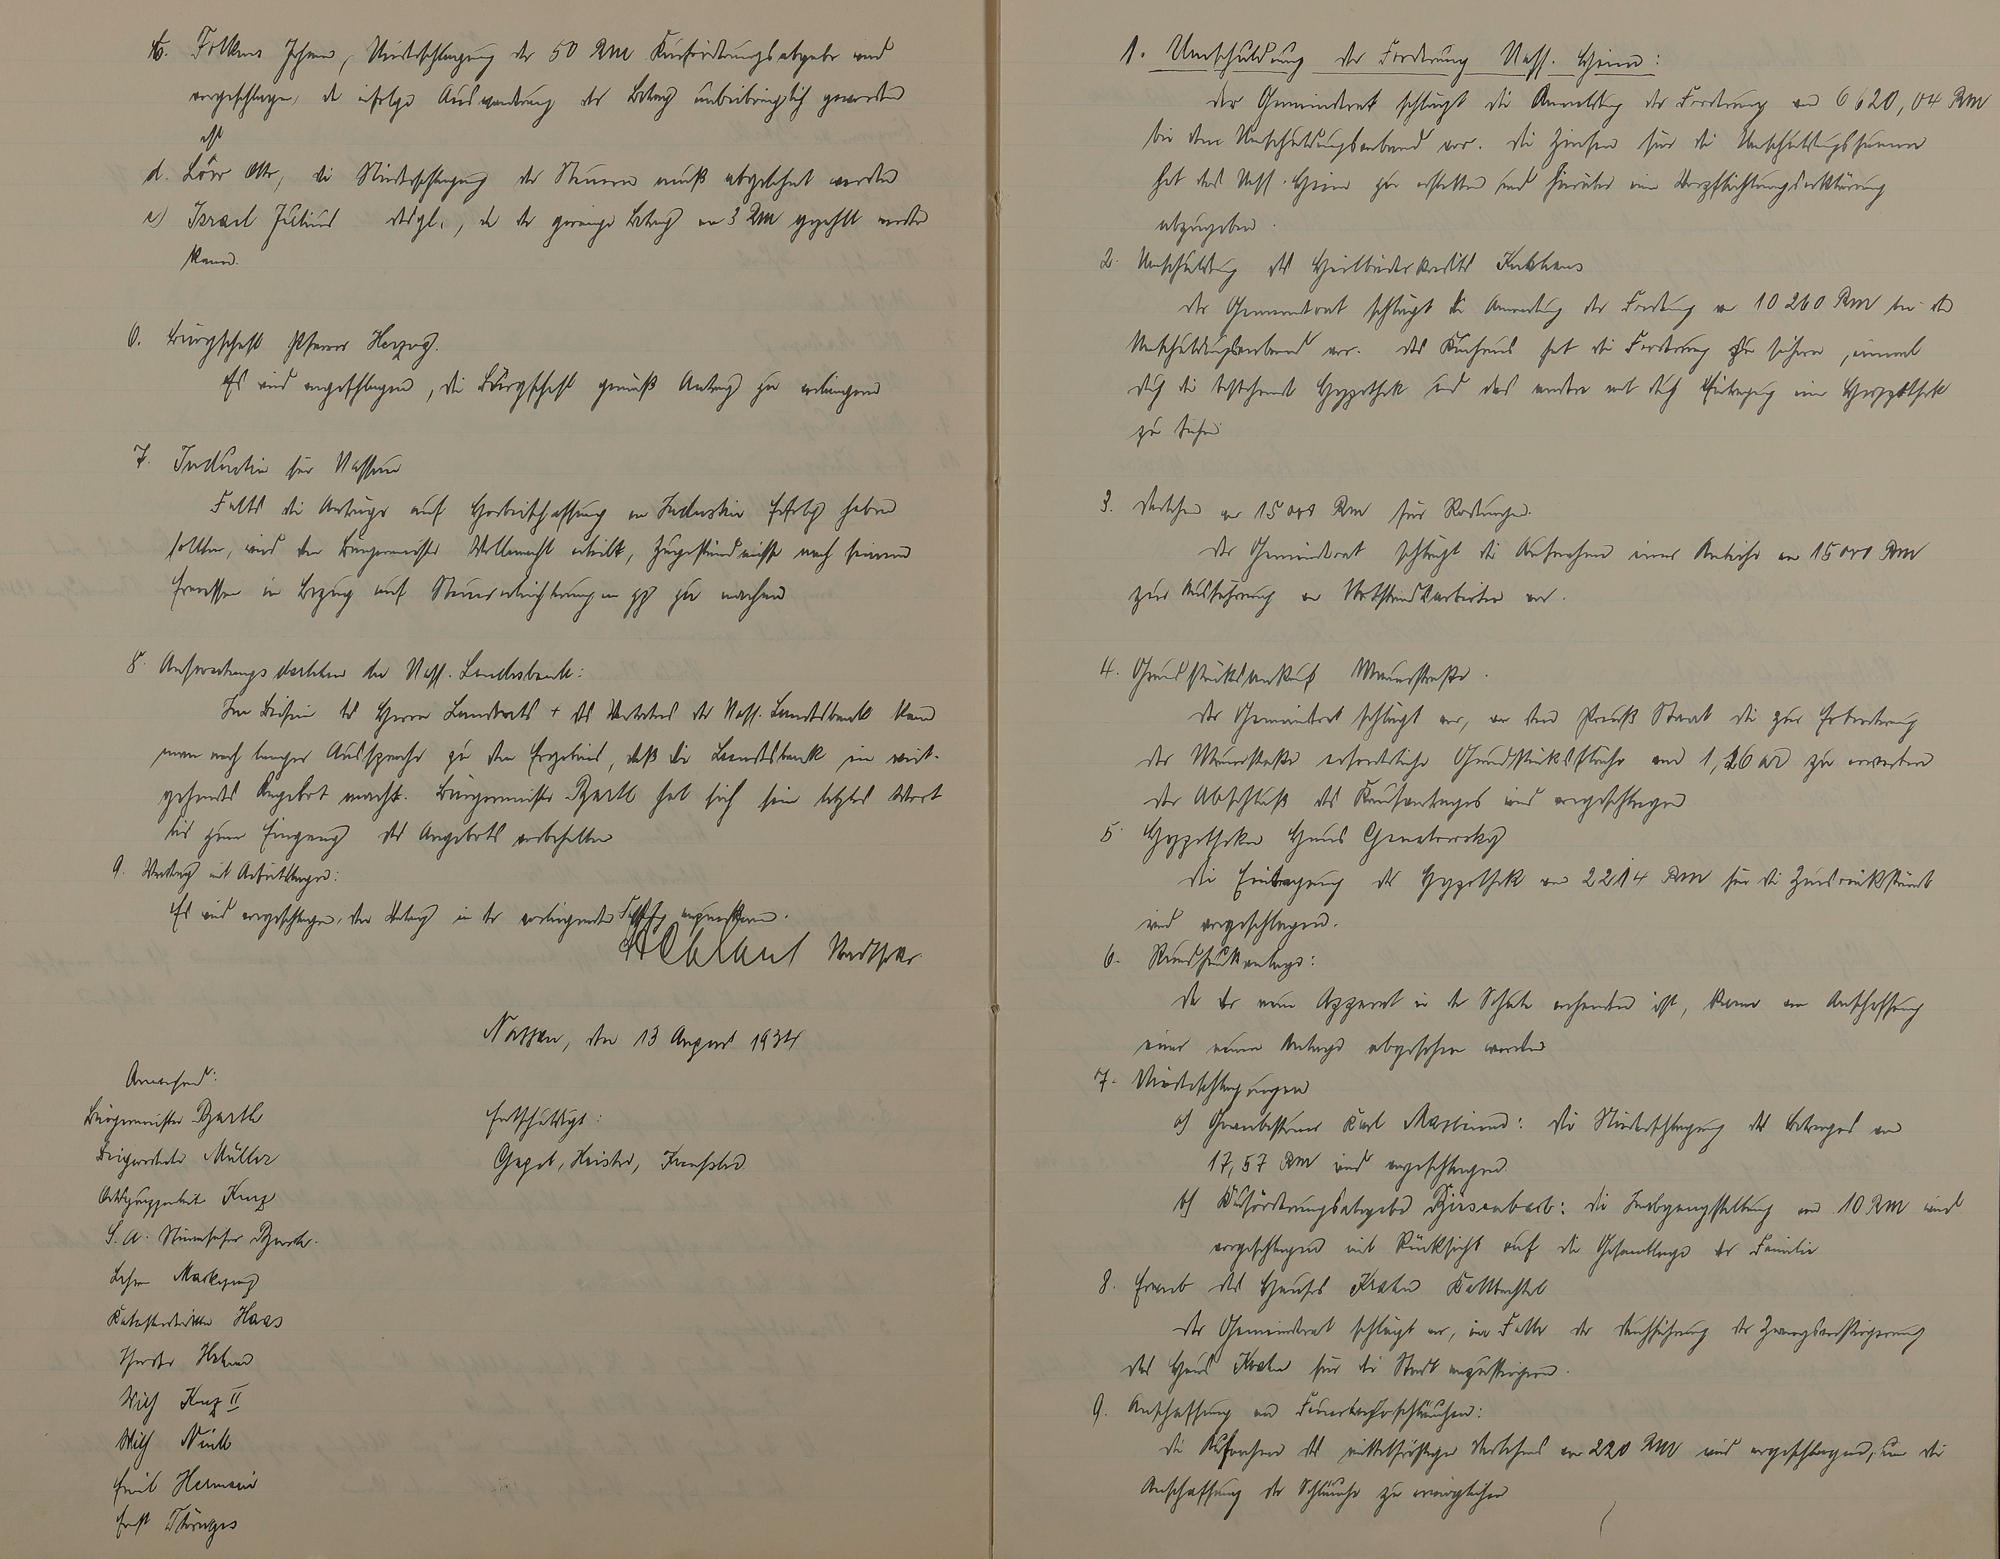 c. Folkner Johann, Niederschlagung der 50 RM Hausförderungsabgabe wird
vorgeschlagen, da infolge Auswanderung der Betrag unbeibringlich geworden
ist
d. Löw Otto, die Niederschlagung der Steuern muß abgelehnt werden
e) Israel Julius desgl., da der geringe Betrag von 3 RM gezahlt werden
kann.
6. Bürgschaft Pfarrer Herzog.
Es wird vorgeschlagen, die Bürgschaft gemäß Antrag zu verlängern
7. Industrie für Nassau
Falls die Anträge auf Herbeischaffung von Industrie Erfolg haben
sollten, wird dem Bürgermeister Vollmacht erteilt, Zugeständnisse nach seinem
Ermessen in Bezug auf Steuererleichterungen pp zu machen
8. Aufwertungsdarlehen der Nass. Landesbank:
Im Beisein des Herrn Landrats + des Vertreters der Nass. Landesbank kam
man nach langer Aussprache zu dem Ergebnis, daß die Landesbank ein weit-
gehendes Angebot macht. Bürgermeister Bartle hat sich sein letztes Wort
bis zum Eingang des Angebots vorbehalten
9. Vertrag mit Arbeitslager:
Es wird vorgeschlagen, den Vertrag in der vorliegenden Fassung anzuerkennen.
Nassau, den 13 August 1934
Anwesend:
Bürgermeister Bartle
Beigeordneter Müller
Ortsgruppenleiter Kurz
S.A. Sturmführer
Lehrer
Katasterdirektor Haas
Förster
Wilh Kurz II
Wilh
Emil Hermani
Ernst Thönges
Entschuldigt:
1. Umschuldung der Forderung Nass. Heim:
Der Gemeinderat schlägt die Anmeldung der Forderung von 6620,04 RM
bei dem Umschuldungsverband vor. Die Zinsen für die Umschuldungssumme
hat das Nass. Heim zu erstatten und hierüber eine Verpflichtungserklärung
abzugeben.
2. Umschuldung des Heilbäderkredits Kurhaus
Der Gemeinderat schlägt die Anmeldung der Forderung von 10260 RM bei dem
Umschuldungsverband vor. Das Kurhaus hat die Forderung zu sichern, einmal
durch die bestehende Hypothek und das andere mal durch Eintragung einer Hypothek
zu sichern
3. Darlehen von 15000 RM für Rodungen.
Der Gemeinderat schlägt die Aufnahme einer Anleihe von 15000 RM
zur Ausführung von Notstandsarbeiten vor.
4. Grundstücksankauf Mauerstraße.
Der Gemeinderat schlägt vor, von dem Preuß Staat die zur Erbreiterung
der Mauerstraße erforderliche Grundstücksfläche von 1,26 ar zu erwerben
Der Abschluß des Kaufvertrages wird vorgeschlagen
5. Hypotheken Haus
Die Eintragung der Hypothek von 2214 RM für die Zinsrückstände
wird vorgeschlagen.
6. Rundfunkanlage:
Da der neue Apparat in der Schule vorhanden ist, kann von Anschaffung
einer neuen Anlage abgesehen werden
7. Niederschlagungen
a) Gewerbesteuer Karl: Die Niederschlagung des Betrages von
17,57 RM wird vorgeschlagen
b) Hausförderungsabgabe: Die Inabgangstellung von 10 RM wird
vorgeschlagen mit Rücksicht auf die Gesamtlage der Familie
8. Erwerb des Hauses
Der Gemeinderat schlägt vor, im Falle der Durchführung der Zwangsversteigerung
das Haus für die Stadt anzusteigern.
9. Anschaffung von Feuerwehrschläuchen:
Die Aufnahme des mittelfristigen Darlehens von 220 RM wird vorgeschlagen, um die
Anschaffung der Schläuche zu ermöglichen